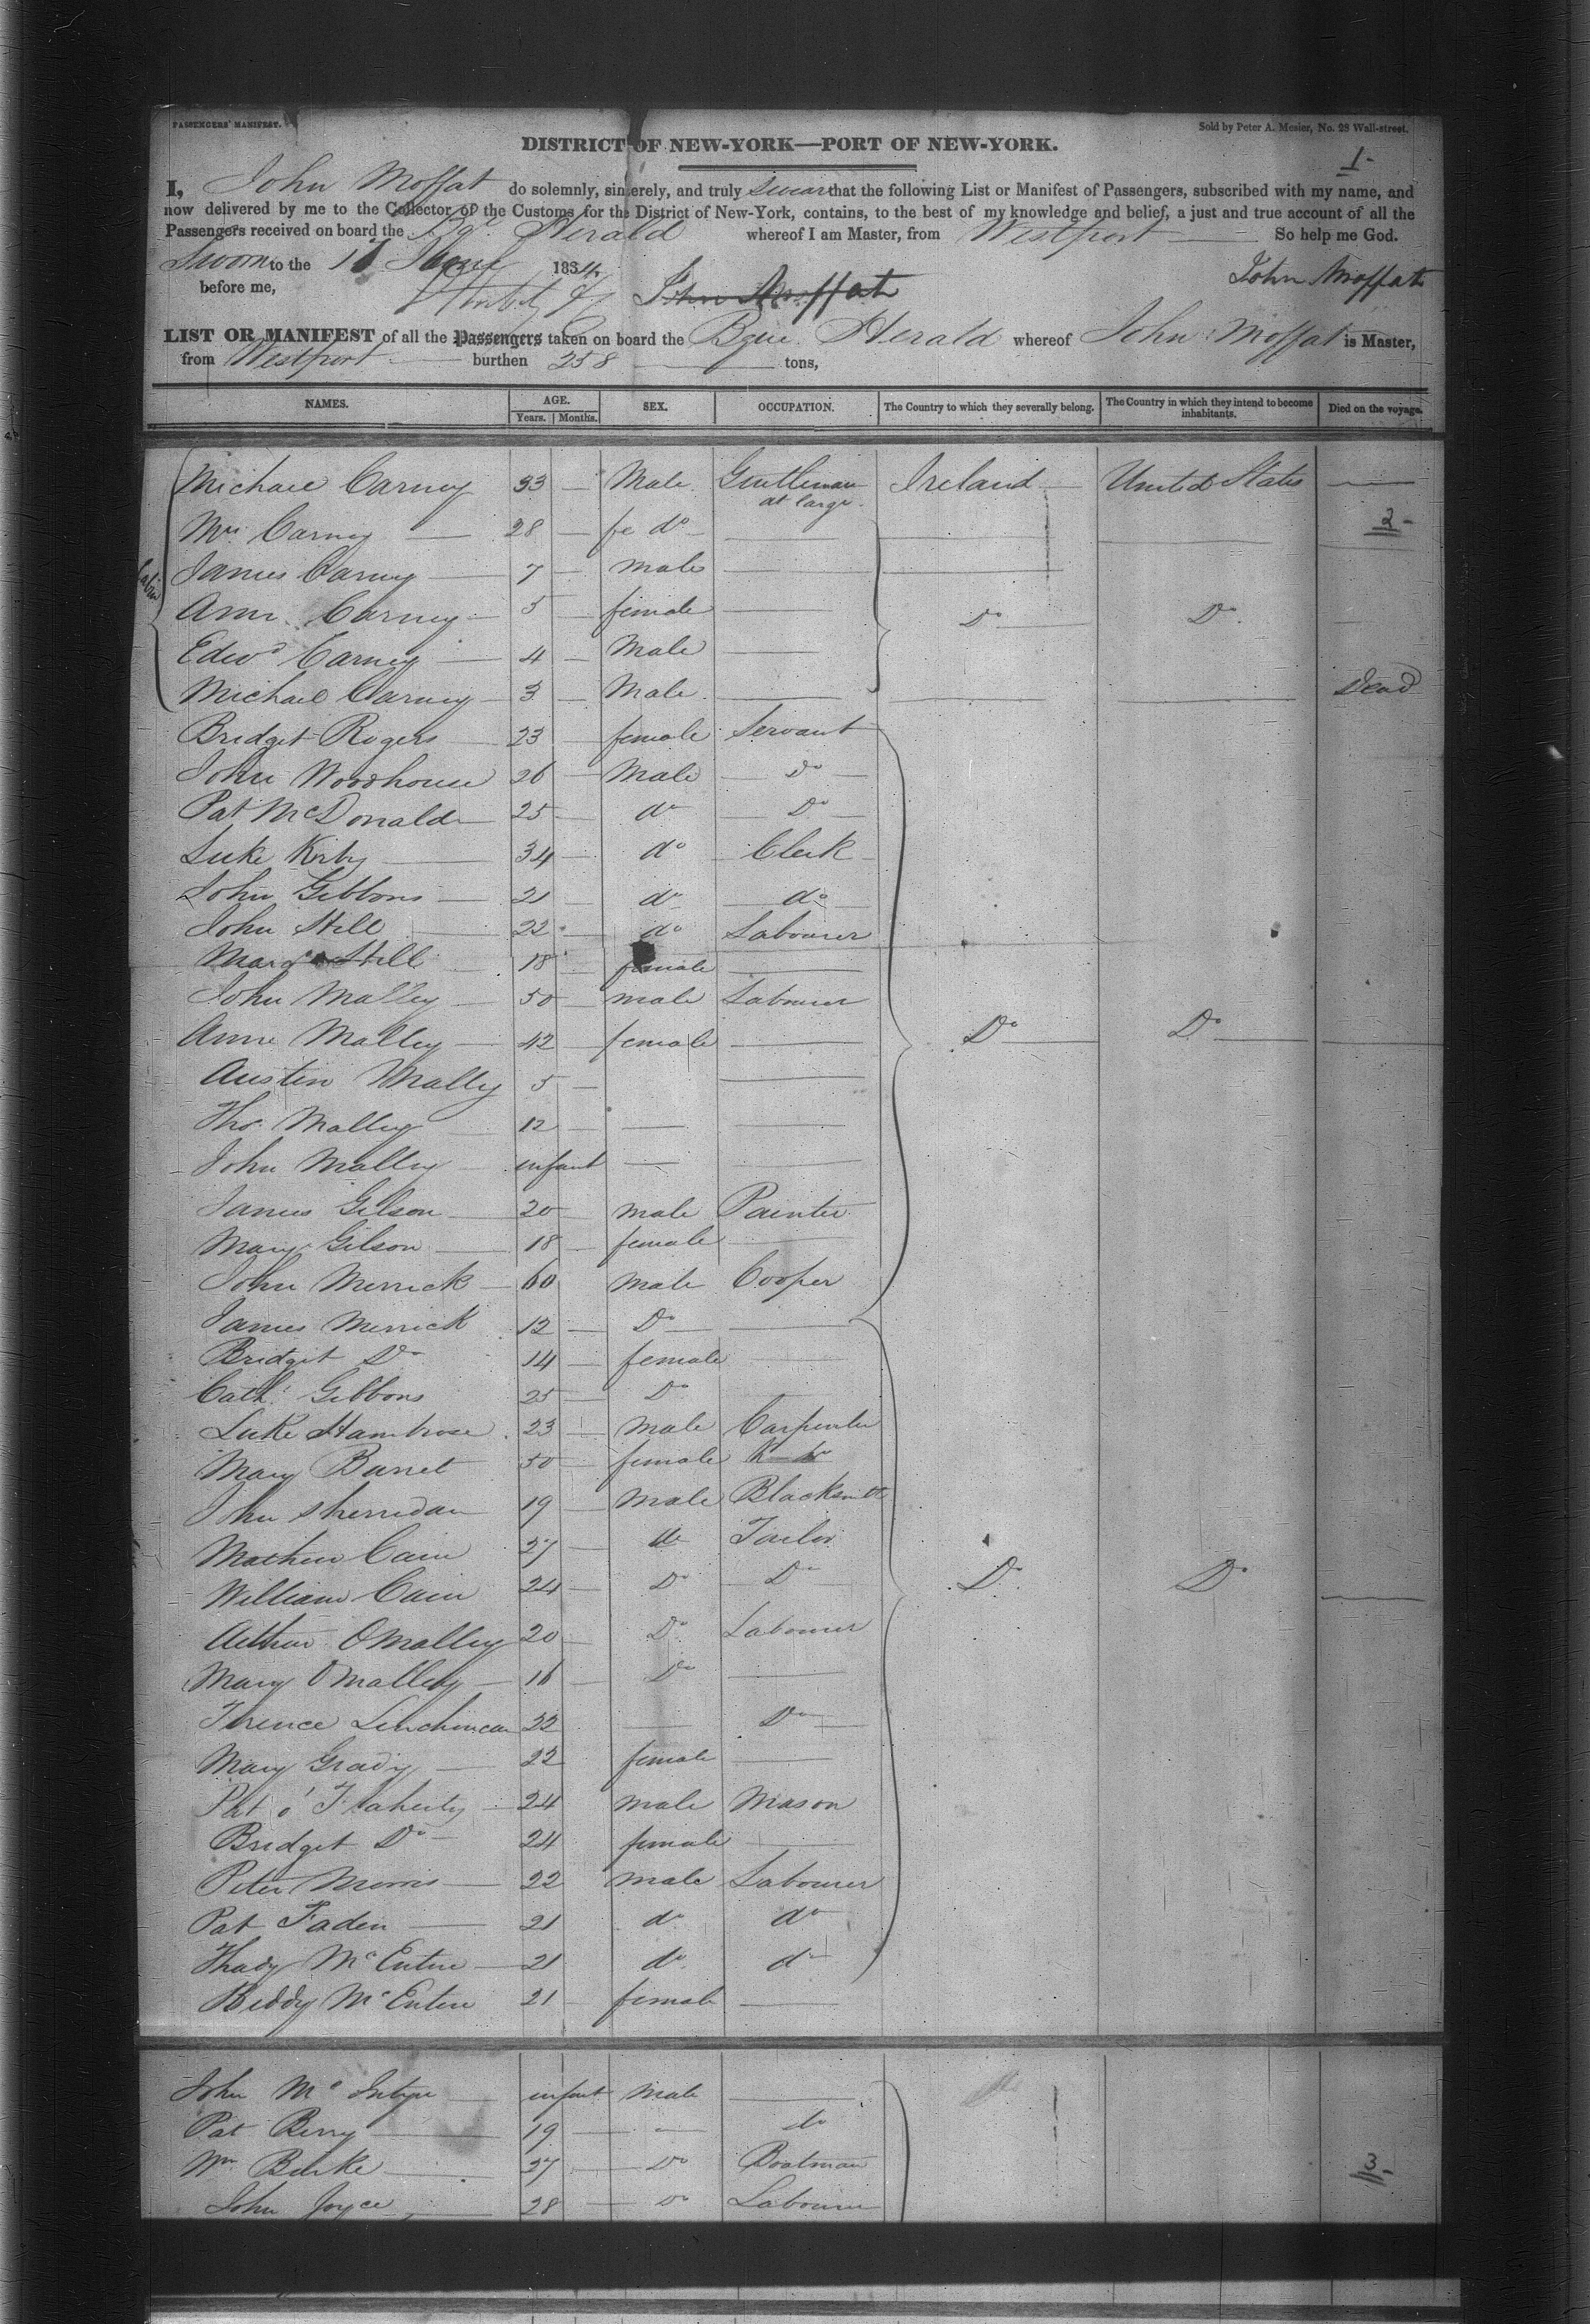 PASSENGERS' MANIFEST.
Sold by Peter A. Mesier, No. 28 Wall-street.
DISTRICT OF NEW-YORK—PORT OF NEW-YORK.
1-
I, John Moffat do solemnly, sincerely, and truly swear that the following List or Manifest of Passengers, subscribed with my name, and
now delivered by me to the Collector of the Customs for the District of New-York, contains, to the best of my knowledge and belief, a just and true account of all the
Passengers received on board the Herald whereof I am Master, from Westport So help me God.
Sworn to the 11 June 1834
before me, John Moffat John Moffat
LIST OR MANIFEST of all the Passengers taken on board the Bque Herald whereof John Moffat is Master,
from Westport burthen 258 tons,
NAMES. AGE. SEX. OCCUPATION. The Country to which they severally belong. The Country in which they intend to become inhabitants. Died on the voyage.
Years. Months.
Cabin
Michael Carney 33 — Male Gentleman at large. Ireland United States —
Mrs. Carney 28 — fe do — 2-
James Carney 7 — male —
Ann Carney 5 female — Do Do
Edwd Carney 4 — Male —
Michael Carney 3 — Male — dead
Bridget Rogers 23 — female Servant
John Woodhouse 26 — Male Do
Pat McDonald 25 — do Do
Luke Kirby 34 — do Clerk
John Gibbons 21 — do do
John Hill 22 — do Labourer
Margt Hill 18 — female —
John Malley 50 — male Labourer
Anne Malley 42 — female — Do Do
Austin Malley 5 — —
Thos. Malley 12 — — —
John Malley infant — —
James Gilson 20 male Painter
Mary Gilson 18 — female —
John Merrick 60 male Cooper
James Merrick 12 — Do —
Bridget Do 14 — female —
Cath. Gibbons 25 — Do
Luke Hambrose 23 — male Carpenter
Mary Barret 50 — female
John Sherridan 19 — male Blacksmith
Mathew Cain 27 — do Tailor
William Cain 24 — Do Do Do Do
Arthur OMalley 20 — Do Labourer
Mary OMalley 16 — Do —
Terence 22 — Do
Mary Grady 22 female —
Pat o' Flaherty 24 male Mason
Bridget Do 24 female —
Peter Morris 22 male Labourer
Pat Faden 21 do do
Thady McEntire 21 do do
Biddy McEntire 21 — female —
John McIntyre infant male —
Pat Berry 19 — — do
Wm Burke 27 — Do Boatman 3-
John Joyce 28 — Do Labourer